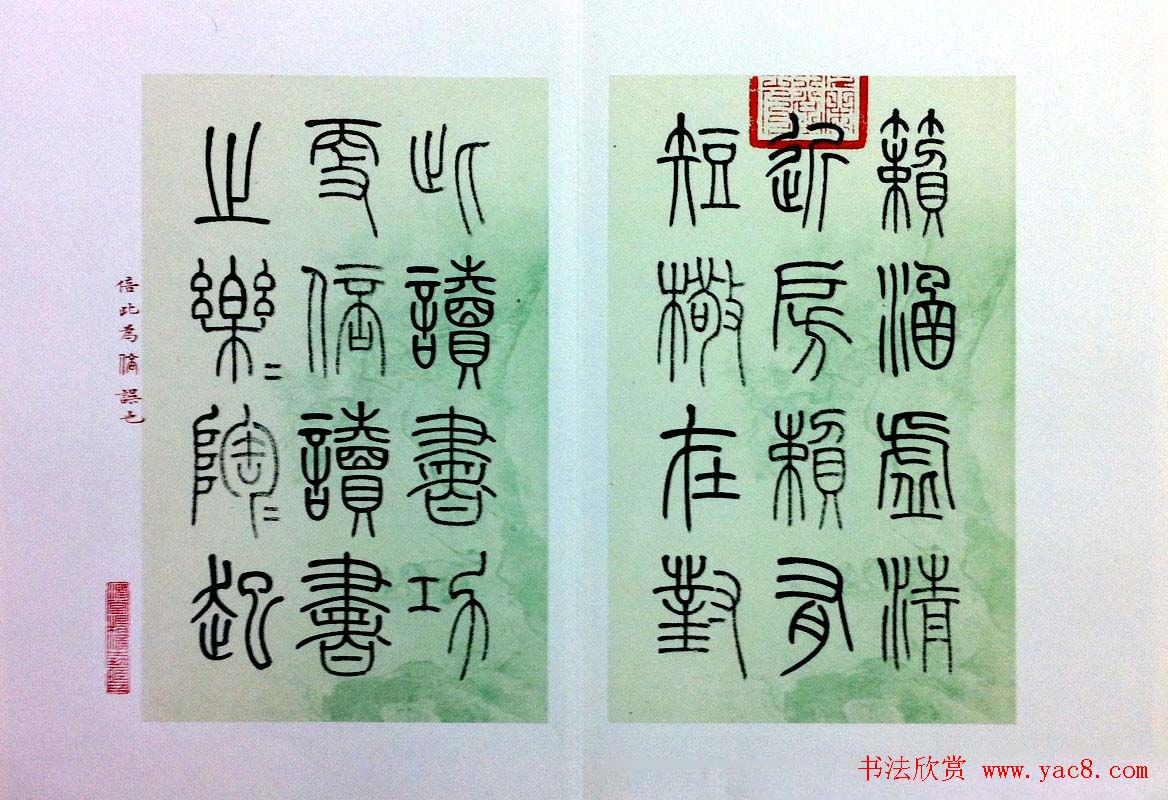 籟涵虛清
近房賴有
短檠在對
此讀書功
更倍讀書
之樂〻陶〻起
倍此為誤也
书法欣赏 www.yac8.com